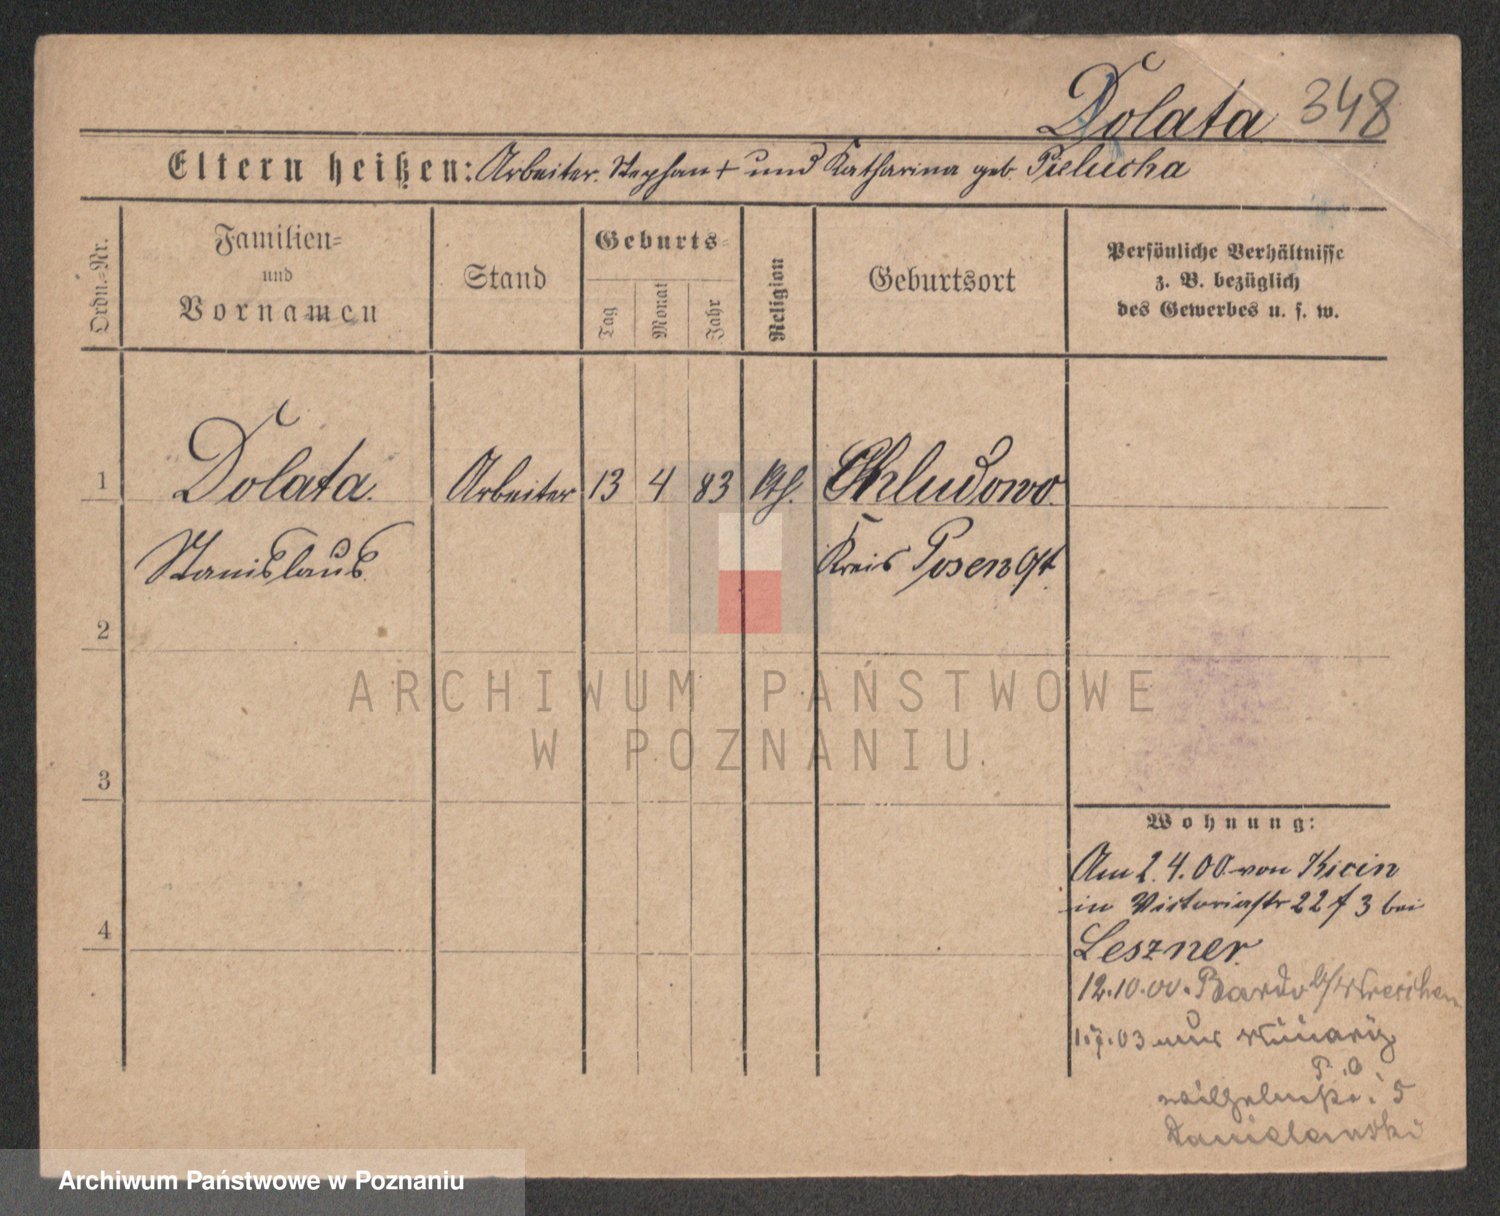 Dolata 348
Eltern heißen: Arbeiter Stephan + und Katharina geb. Pielucha
Ordn.=Nr.
Familien=
und
Vornamen
Stand
Geburts=
Tag
Monat
Jahr
Religion
Geburtsort
Persönliche Verhältnisse
z. B. bezüglich
des Gewerbes u. s. w.
1 Dolata. Arbeiter 13 4 83 kth. Chludowo.
Stanislaus. Kreis Posen Ost
2
3
4
ARCHIWUM PAŃSTWOWE
W POZNANIU
Wohnung:
Am 2.4.00 von Kicin
in Victoriastr 22 f 3 bei
Leszner.
12.10.00. Bardo b/Wreschen
1.7.03
5
Danielewski
Archiwum Państwowe w Poznaniu